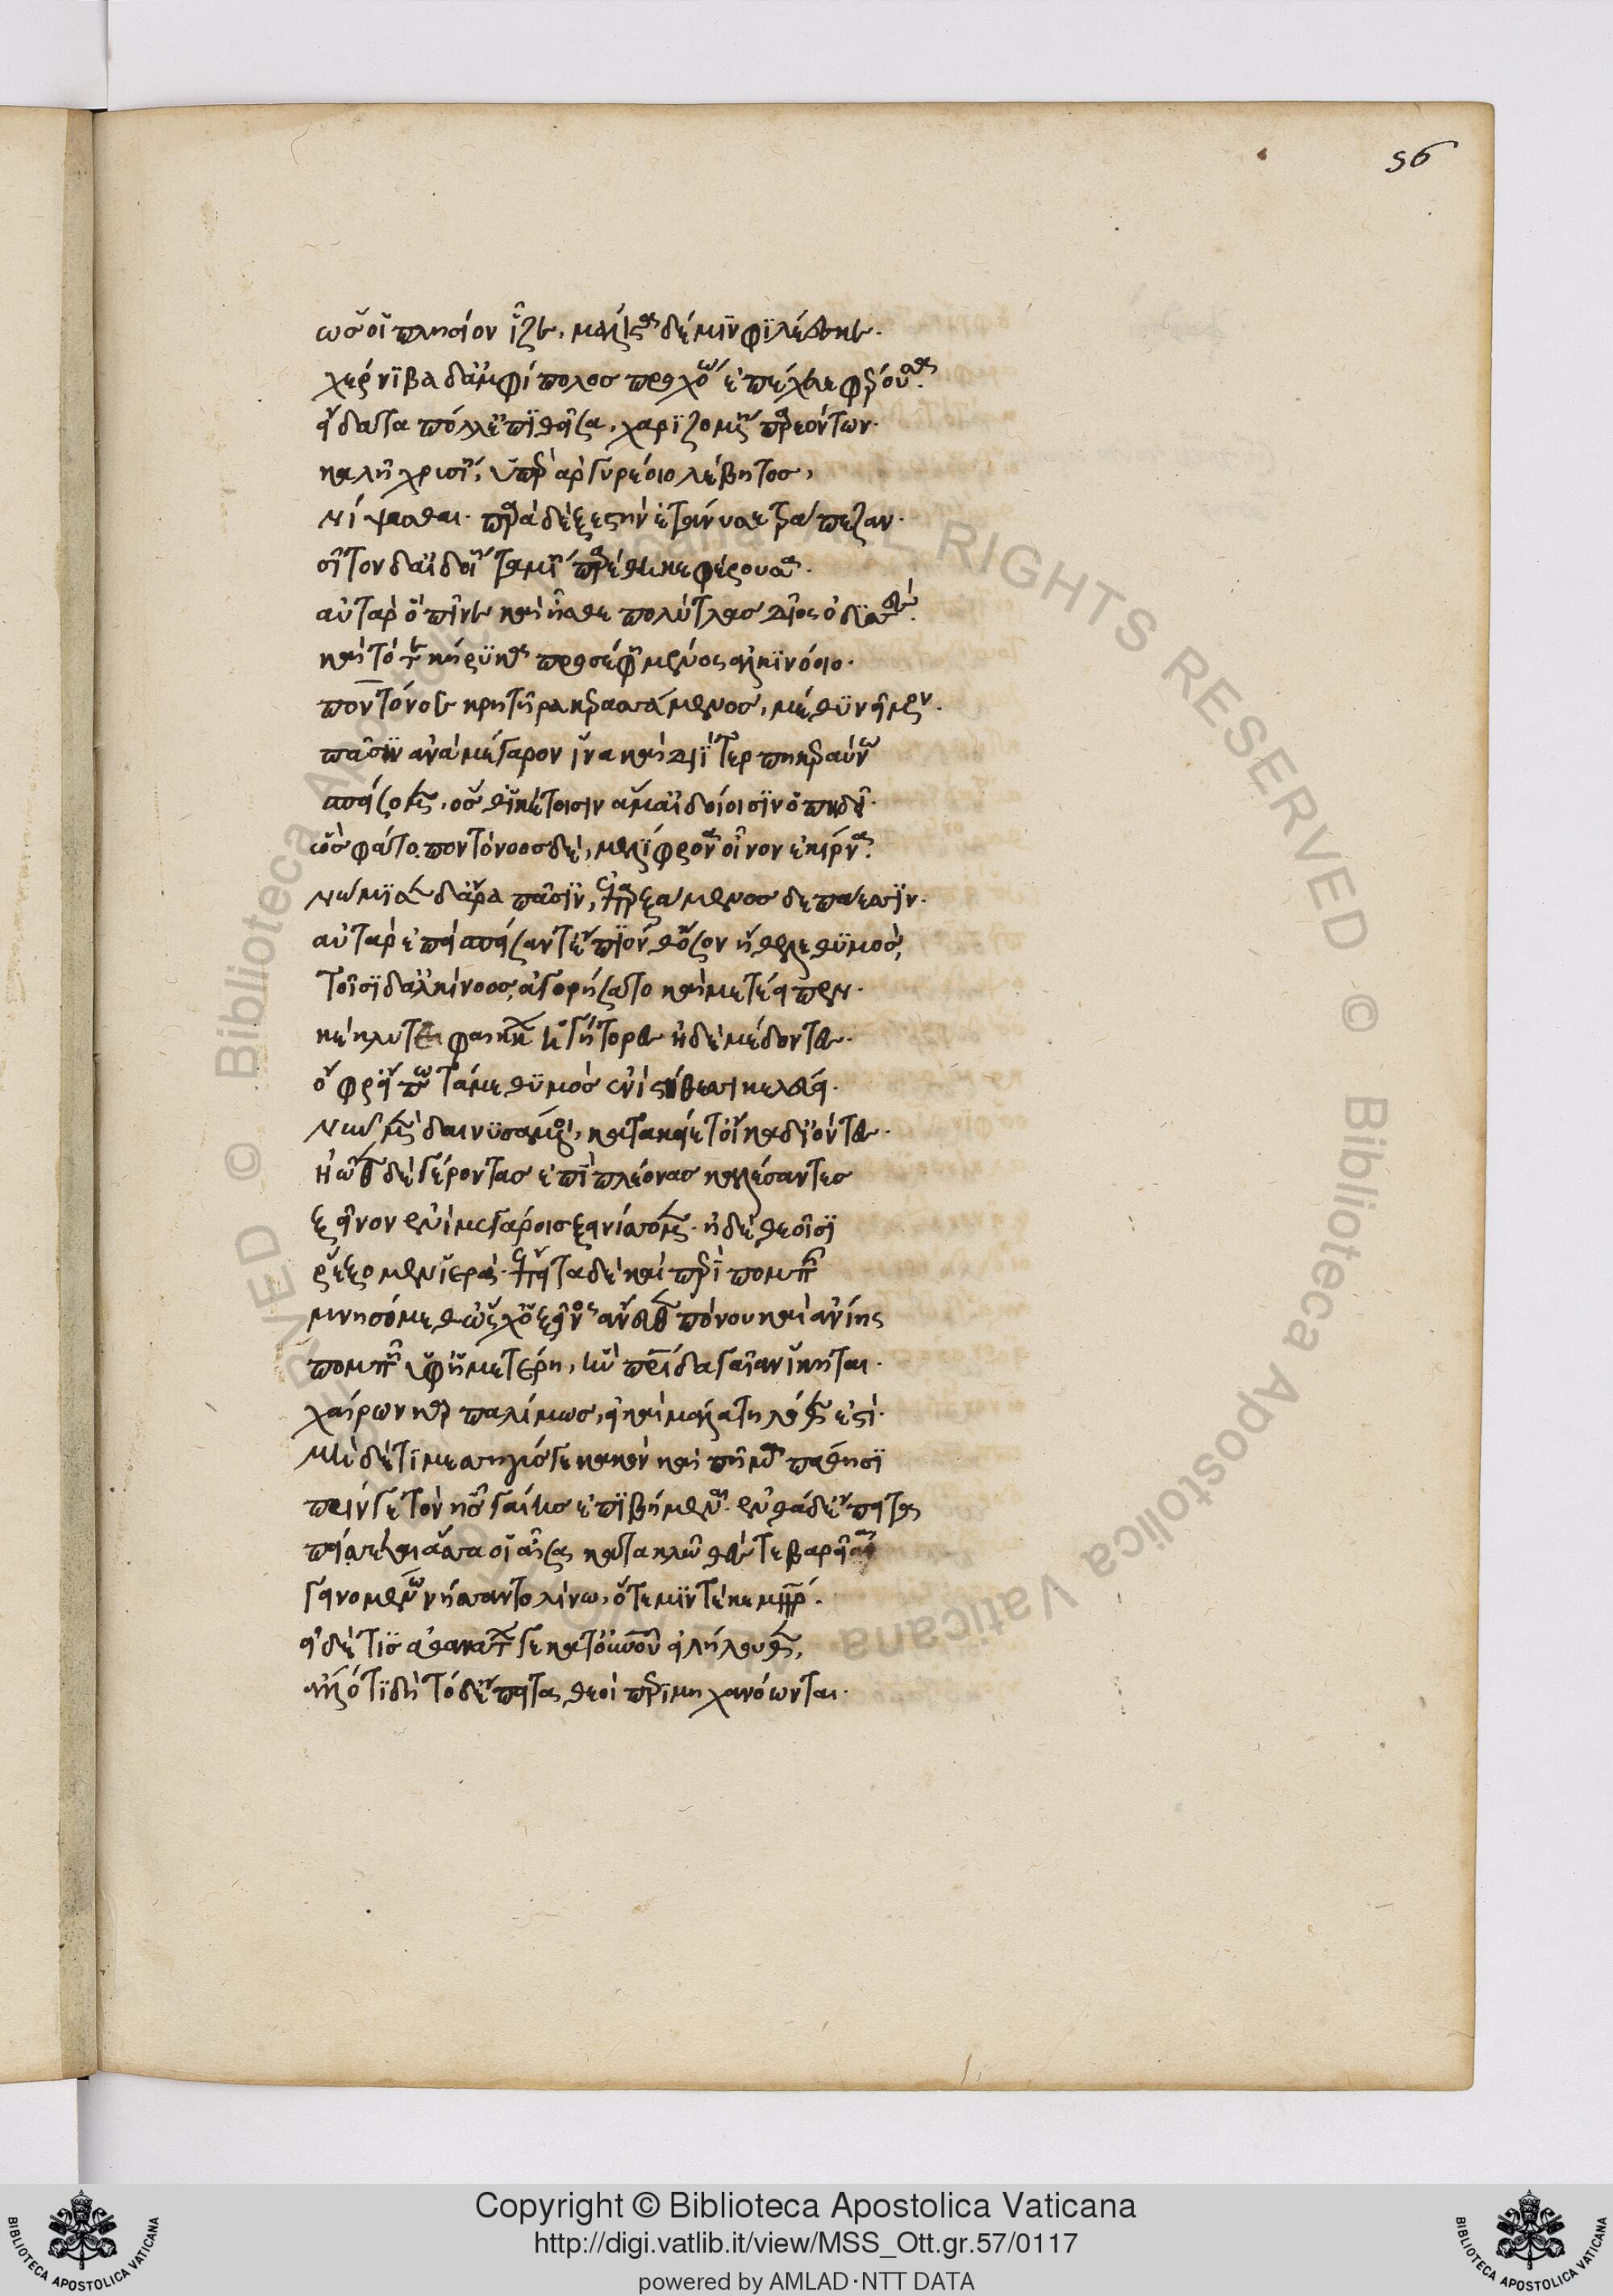 56
ὡς οἱ πλησίον ἷζε, μάλιστα δέ μϊν φϊλέεσκε.
χέρνϊβα δ' ἀμφίπολος προχόω ἐπέχευε φέρουσα.
εἴδατα πόλλ' ἐπϊθεῖσα, χαρϊζομένη παρεόντων.
καλῆ χρυσείη, ὑπὲρ ἀργυρέοιο λέβητος,
νίψασθαι. παρὰ δὲ ξεστὴν ἐτάνυσε τράπεζαν.
σῖτον δ' αἰδοίη ταμίη παρέθηκε φέρουσα.
αὐτὰρ ὃ πῖνε καὶ ἦσθε πολύτλας δῖος ὀδυσσεύς.
καὶ τότε κήρυκα προσέφη μένος ἀλκινόοιο.
ποντόνοε κρητῆρα κερασσάμενος, μέθυ νεῖμον
πᾶσϊν ἀνὰ μέγαρον ἵνα καὶ διῒ τερπικεραύνω
σπείσομεν, ὅς θ' ἱκέτησιν ἅμ' αἰδοίοισϊν ὀπηδεῖ.
ὣς φάτο. ποντόνοος δὲ, μελίφρονα οἶνον ἐκίρνα.
νώμησεν δ' ἄρα πᾶσϊν, ἐπαρξάμενος δεπάεσσϊν.
αὐτὰρ ἐπεὶ σπεῖσάν τ' ἔπϊόν θ' ὅσον ἤθελε θϋμὸς,
τοῖσϊ δ' ἀλκίνοος, ἀγορήσατο καὶ μετέειπεν.
κέκλυτε φαιήκων ἡγήτορες ἠδὲ μέδοντες.
ὄφρ' εἴπω τά με θϋμὸς ἐνὶ στήθεσσι κελεύει.
νῦν μὲν δαισϋσάμενοι, κατακείετε οἴκαδ' ϊόντες.
ἠῶθεν δὲ γέροντας ἐπὶ πλέονας καλέσαντες
ξεῖνον ἐνὶ μεγάροις ξεινίσσομεν. ἠδὲ θεοῖσϊ
ῥέξομεν ἱερὰ. ἔπειτα δὲ καὶ περὶ πομπῆς
μνησόμεθ' ὥς χ' ὁ ξεῖνος ἄνευθεν πόνου καὶ ἀνίης
πομπῆ ὑφ' ἡμετέρη, ἣν πατρίδα γαῖαν ἵκηται.
χαίρων καρπαλίμως, εἰ καὶ μάλα τηλόθεν ἐστί.
μὴ δέ τϊ μεσσηγύς γε κακὸν καὶ πῆμα πάθησϊ
πρίν γε τὸν ἧς γαίης ἐπϊβήμεναι. ἔνθα δ' ἔπειτα
πείσεται ἅσσα οἱ αἶσα κατακλῶθές τε βαρεῖαι
γεινομένω νήσαντο λίνω, ὅτε μϊν τέκε μήτηρ.
εἰ δέ τϊς ἀθανάτων γε κατ' οὐρανοῦ εἰλήλουθεν,
ἄλλο τϊ δὴ τόδ' ἔπειτα θεοὶ περϊμηχανόωνται.
Copyright © Biblioteca Apostolica Vaticana
http://digi.vatlib.it/view/MSS_Ott.gr.57/0117
powered by AMLAD·NTT DATA